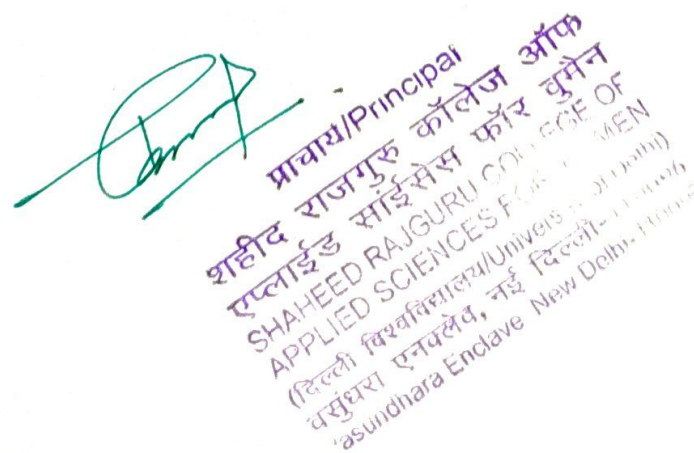 प्राचार्य/Principal
शहीद राजगुरु कॉलेज ऑफ
एप्लाईड साईंसेस फॉर वुमेन
SHAHEED RAJGURU COLLEGE OF
APPLIED SCIENCES FOR WOMEN
(दिल्ली विश्वविद्यालय/University of Delhi)
वसुंधरा एनक्लेव, नई दिल्ली-
Vasundhara Enclave New Delhi-